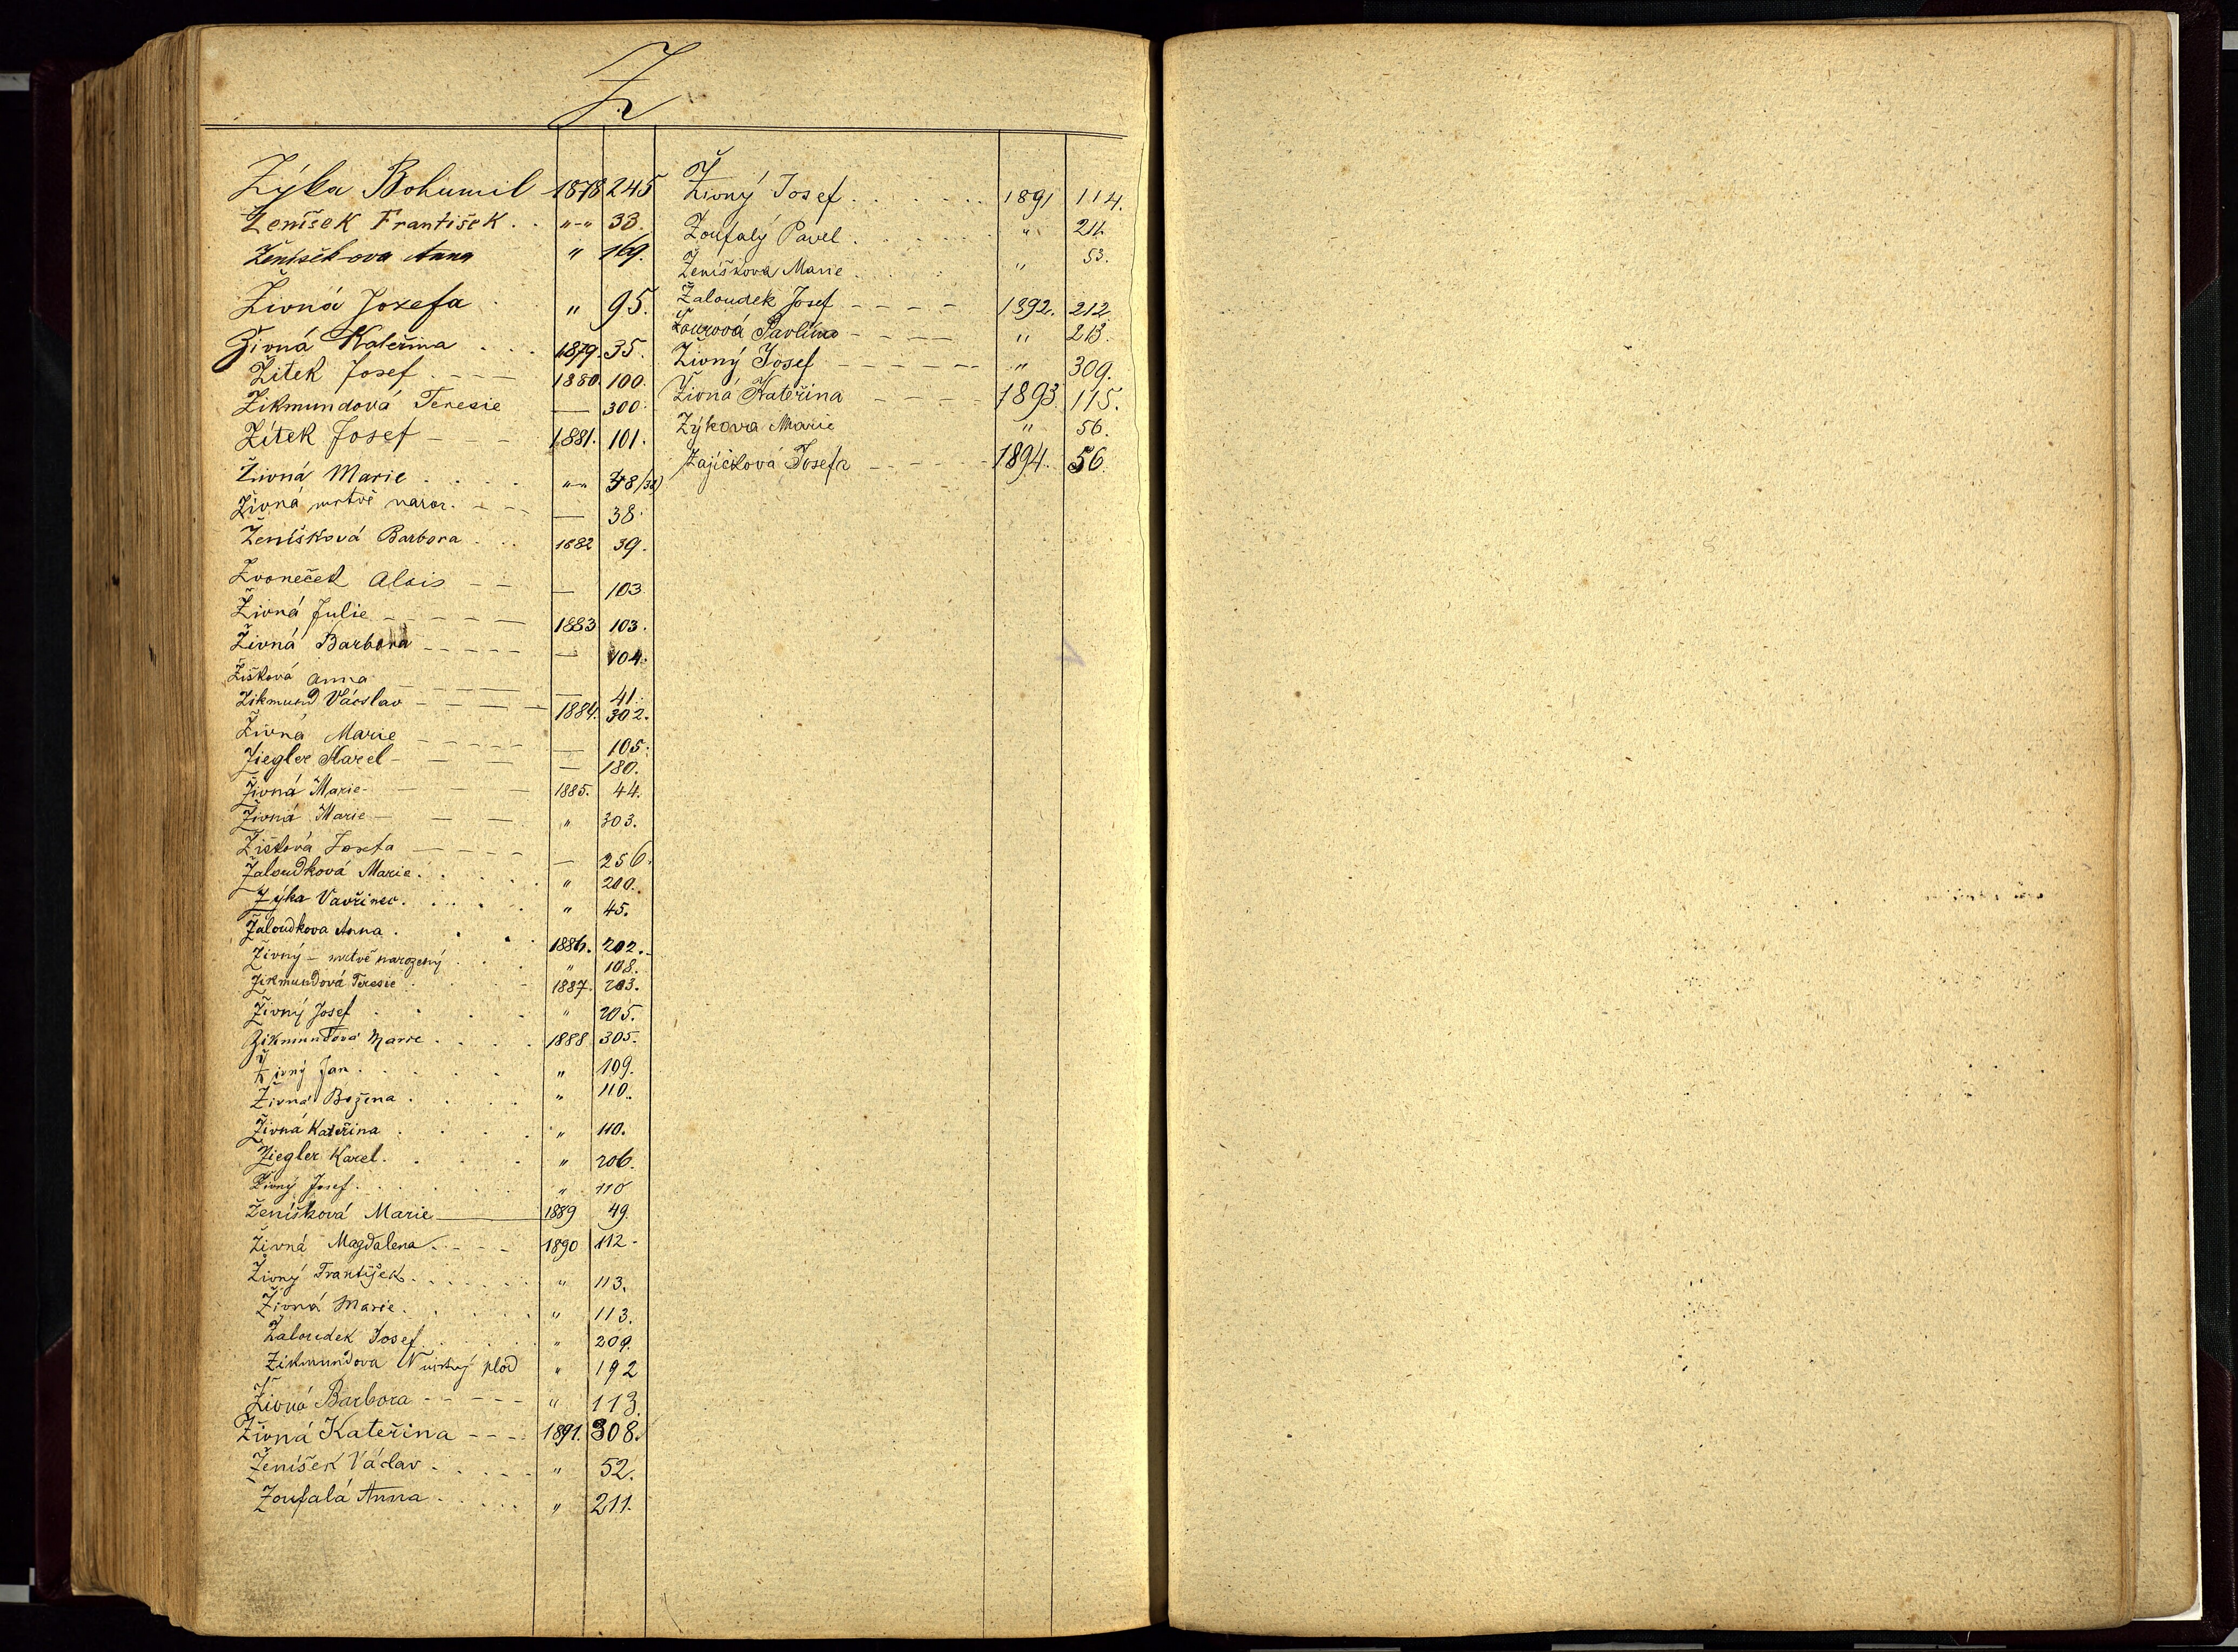 Z
Zýka Bohumil 1878 245
Ženíšek František . . „-„ 33.
Ženíškova Anna „ 169.
Živná Jozefa . „ 95.
Živná Kateřina . . . 1879. 35.
Žitek Josef . - - - 1880. 100.
Zikmundová Teresie — 300.
Žítek Josef - - - 1881. 101.
Živná Marie . . . . „-„
Živná mrtvě naroz. - - - — 38.
Ženíšková Barbora . . . 1882 39.
Zvoneček Alois - - — 103.
Živná Julie - - - - - 1883 103.
Živná Barbora - - - - - — 104.
Žišková Anna - - - - — 41.
Zikmund Václav - - - - 1884. 302.
Živná Marie - - - - - — 105.
Ziegler Karel - - - - — 180.
Živná Marie - - - - 1885. 44.
Živná Marie - - - „ 303.
Žišková Josefa - - - - — 256.
Žaloudková Marie . . . . „ 200.
Zýka Vavřinec . . . . „ 45.
Žaloudkova Anna . . . . 1886. 202.
Živný - mrtvě narozený . . . „ 108.
Zikmundová Teresie . . . 1887. 203.
Živný Josef . . . . „ 205.
Zikmundová Marie . . . . 1888 305.
Živný Jan . . . . . „ 109.
Živná Božena . . . . „ 110.
Živná Kateřina . . . . „ 110.
Ziegler Karel . . . . „ 206.
Živný Josef . . . . . „ 110
Ženíšková Marie — 1889 49.
Živná Magdalena . - - - 1890 112.
Živný František . . . . . . „ 113.
Živná Marie . . . . . „ 113.
Žaloudek Josef . . . . „ 209.
Zikmundova plod „ 192
Živná Barbora - - - - - „ 113.
Živná Kateřina - - - 1891. 308.
Ženíšek Václav . . . . . „ 52.
Zoufalá Anna . . . . . „ 211.
Živný Josef . . . . . . . 1891 114.
Zoufalý Pavel . . . . . . „ 211.
Ženíškova Marie . . . . „ 53.
Žaloudek Josef - - - - 1892. 212.
Pavlína - - - - „ 213.
Živný Josef - - - - - - „ 309.
Živná Kateřina - - - - - 1893. 115.
Zýkova Marie „ 56.
Zajíčková Josefa - - - - - 1894. 56.